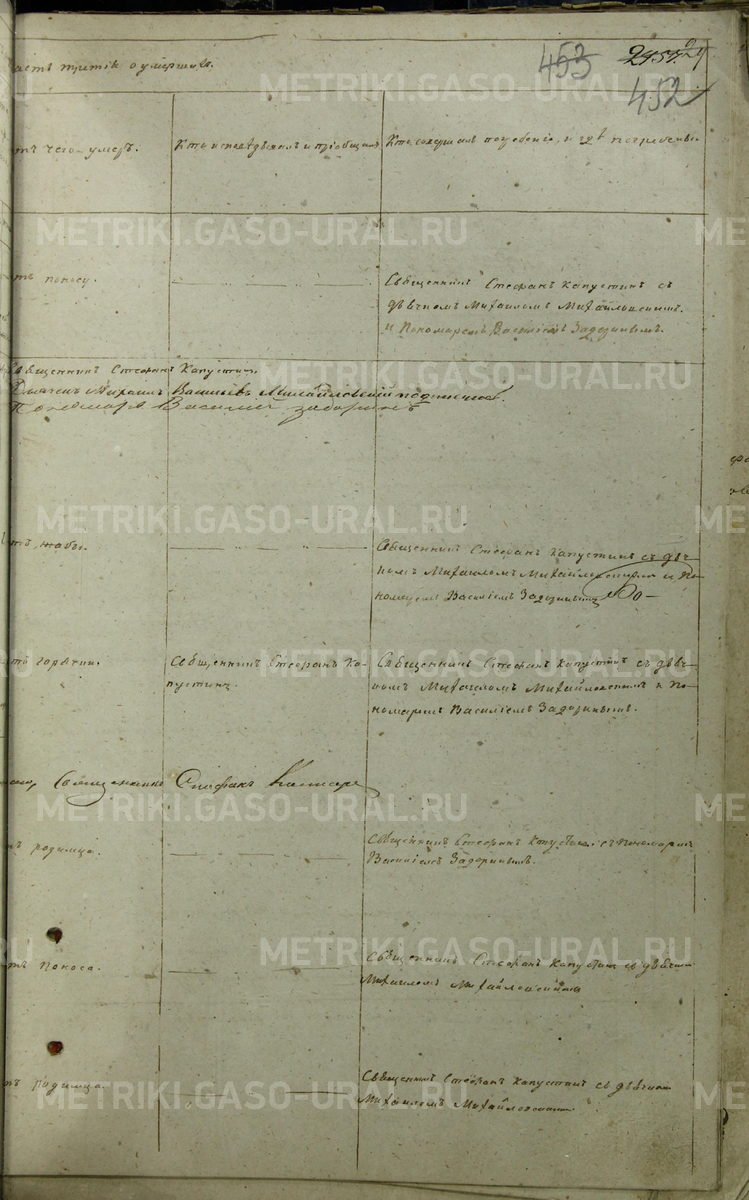 асть третія о умершихъ.
453
452
тъ чего умеръ.
Кто исповѣдывалъ и пріобщалъ
Кто совершалъ погребеніе, и гдѣ погребены.
тъ поносу.
Священникъ Стефанъ Капустинъ съ
дьячкомъ Михаиломъ Михайловскимъ
и Пономаремъ Василіемъ Задоринымъ.
Священникъ Стефанъ Капустинъ
Дьячекъ Михаилъ Васильевъ Михайловскій
Пономарь Василій Задоринъ
тъ жабы.
Священникъ Стефанъ Капустинъ съ дьяч-
комъ Михаиломъ Михайловскимъ и По-
номаремъ Василіемъ Задоринымъ
тъ горячки.
Священникъ Стефанъ Ка-
пустинъ.
Священникъ Стефанъ Капустинъ съ дьяч-
комъ Михаиломъ Михайловскимъ и По-
номаремъ Василіемъ Задоринымъ.
Священникъ Стефанъ
ъ родимца.
Священникъ Стефанъ Капустинъ съ Пономаремъ
Василіемъ Задоринымъ.
тъ поноса.
Священникъ Стефанъ Капустинъ съ дьячкомъ
Михаиломъ Михайловскимъ
ъ родимца.
Священникъ Стефанъ Капустинъ съ дьячкомъ
Михаиломъ Михайловскимъ
METRIKI.GASO-URAL.RU